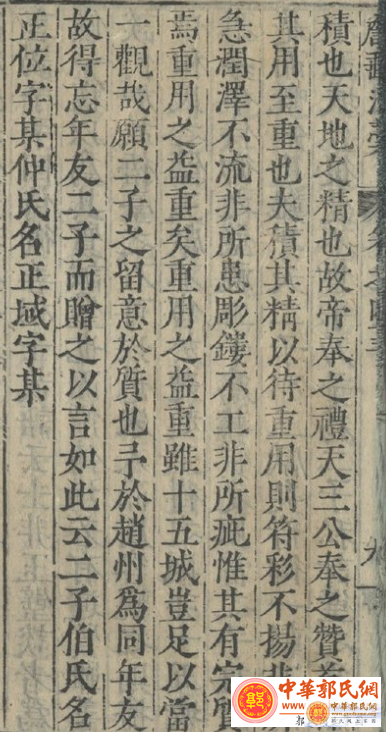 積也天地之精也故帝奉之禮天三公奉之贊
其用至重也夫積其精以待重用則符彩不揚非
急潤澤不流非所患彫鏤不工非所疵惟其有完質
焉重用之益重矣重用之益重雖十五城豈足以當
一觀哉願二子之留意於質也予於趙州為同年友
故得忘年友二子而贈之以言如此云二子伯氏名
正位字某仲氏名正域字某
中華郭氏網